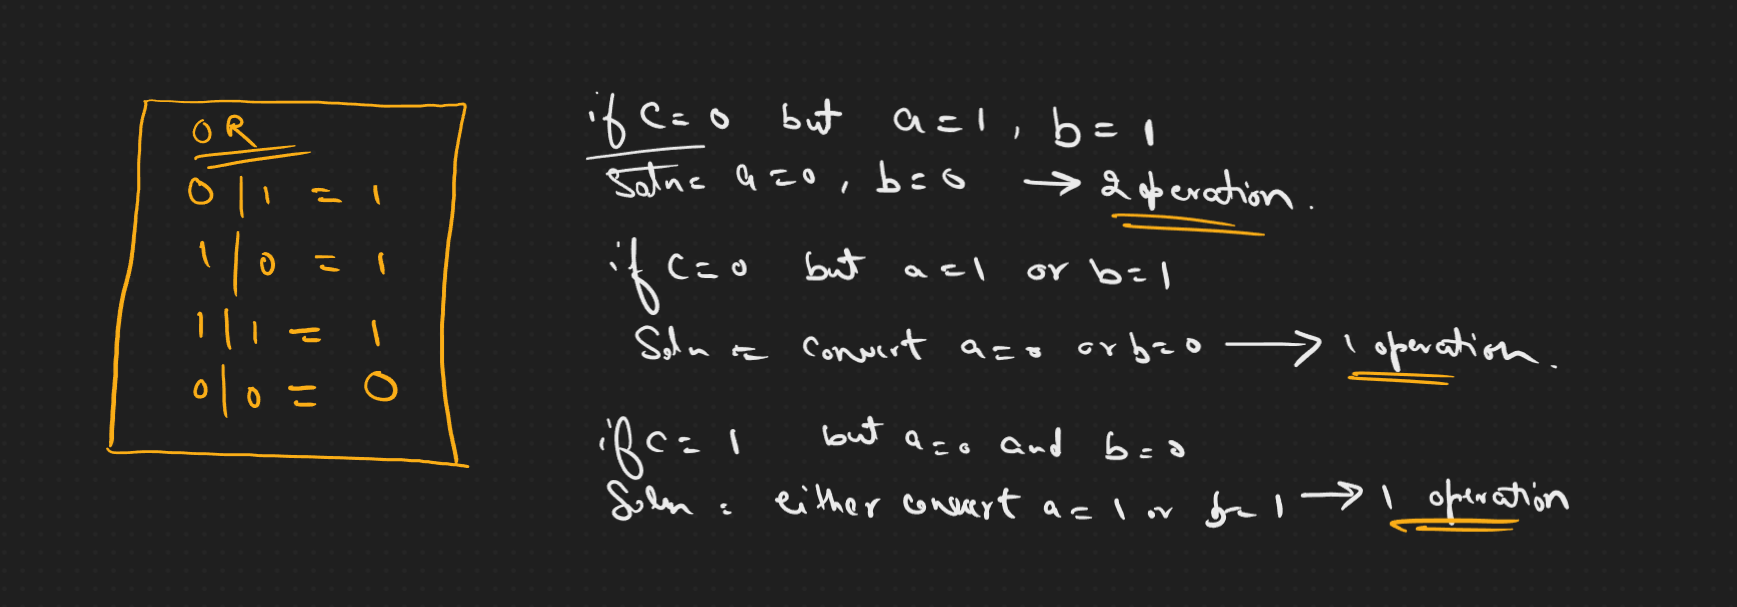 OR
0 | 1 = 1
1 | 0 = 1
1 | 1 = 1
0 | 0 = 0
if C = 0 but a = 1, b = 1
Soln = a = 0, b = 0 → 2 operation.
if C = 0 but a = 1 or b = 1
Soln = convert a = 0 or b = 0 → 1 operation.
if C = 1 but a = 0 and b = 0
Soln : either convert a = 1 or b = 1 → 1 operation